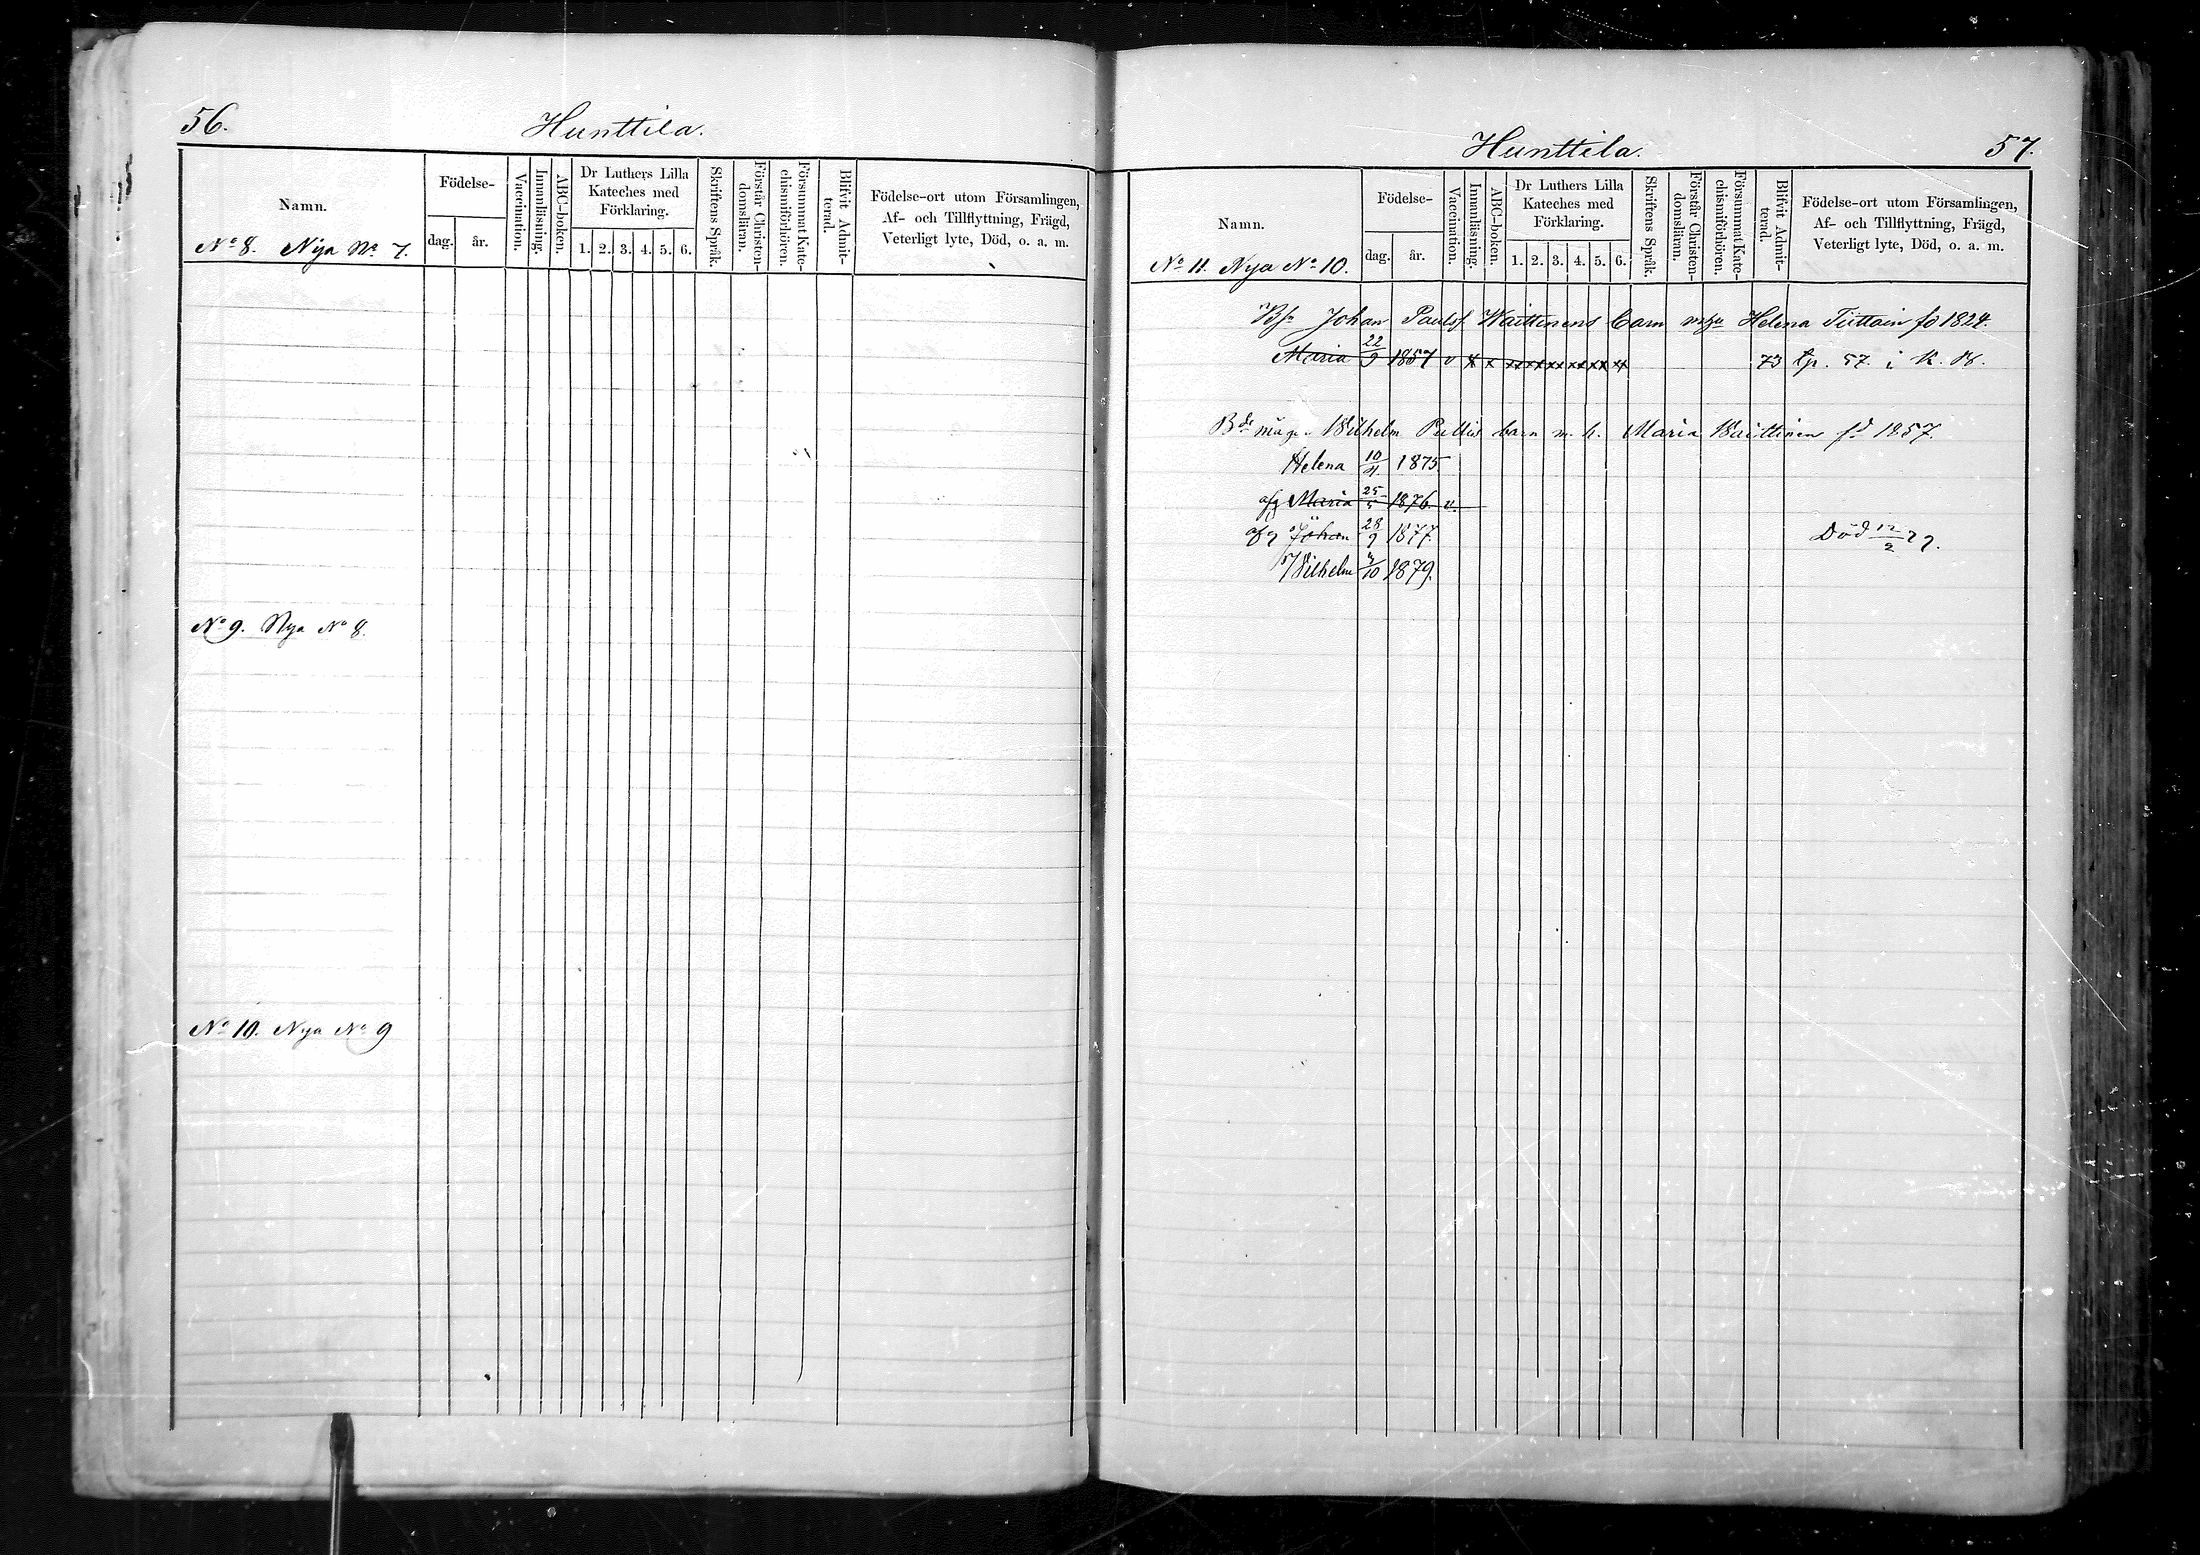 56.
Hunttila.
Namn.
Födelse-
dag.
år.
Vaccination.
Innanläsning.
ABC-boken.
Dr Luthers Lilla
Kateches med
Förklaring.
1. 2. 3. 4. 5. 6.
Skriftens Språk.
Förstår Christen-
domsläran.
Försummat Kate-
chismiförhören.
Blifvit Admit-
terad.
Födelse-ort utom Församlingen,
Af- och Tillflyttning, Frägd,
Veterligt lyte, Död, o. a. m.
No 8. Nya No 7.
No 9. Nya No 8.
No 10. Nya No 9
Hunttila.
57.
Namn.
Födelse-
dag.
år.
Vaccination.
Innanläsning.
ABC-boken.
Dr Luthers Lilla
Kateches med
Förklaring.
1. 2. 3. 4. 5. 6.
Skriftens Språk.
Förstår Christen-
domsläran.
Försummat Kate-
chismiförhören.
Blifvit Admit-
terad.
Födelse-ort utom Församlingen,
Af- och Tillflyttning, Frägd,
Veterligt lyte, Död, o. a. m.
No 11. Nya No 10.
Johan Paulss. Waittinens barn Helena fö 1824.
Maria 22/9 1857 v x x xx xx xx xx xx xx 73 p. 57. i K. B.
Wilhelm barn m. h. Maria Waittinen fd 1857.
Helena 10/11 1875
Maria 25/5 1876. v.
Johan 28/9 1877. Död 12/2 79.
Wilhelm 1879.